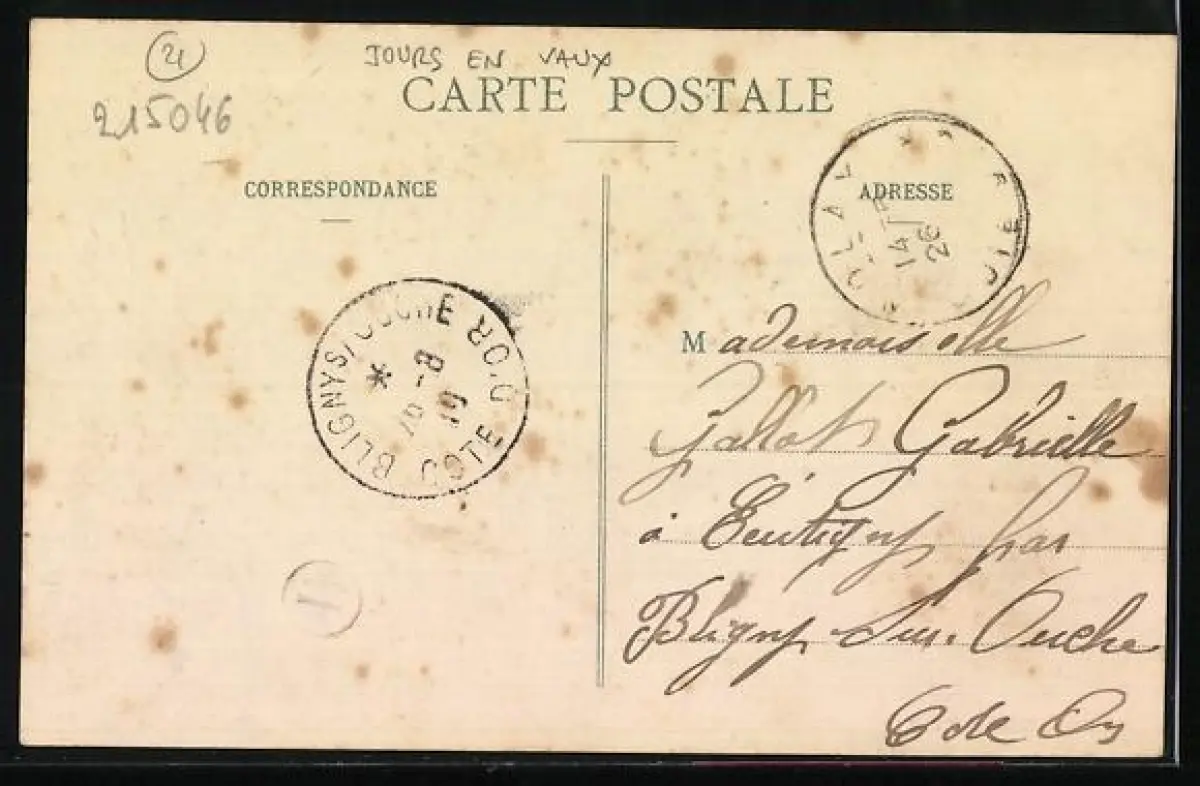 21
JOURS EN VAUX
215046
CARTE POSTALE
CORRESPONDANCE
ADRESSE
14
26
BLIGNY S/ OUCHE COTE D'OR
*
10 -8
10
Mademoiselle
Gallot Gabrielle
à Teutigny par
Bligny Sur. Ouche
Cote Or